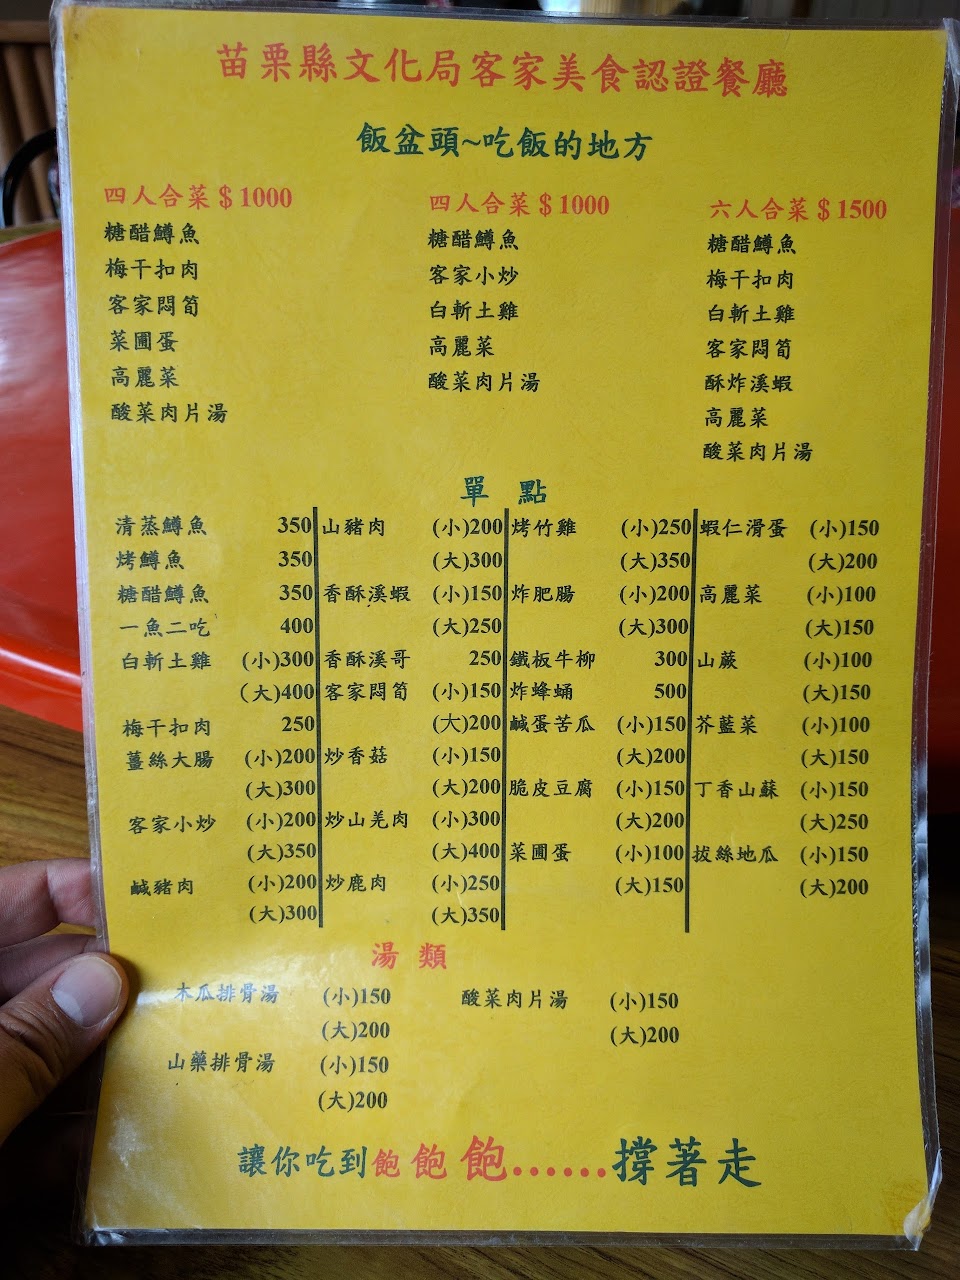 苗栗縣文化局客家美食認證餐廳
飯盆頭~吃飯的地方
四人合菜$1000
糖醋鱒魚
梅干扣肉
客家悶筍
菜圃蛋
高麗菜
酸菜肉片湯
四人合菜$1000
糖醋鱒魚
客家小炒
白斬土雞
高麗菜
酸菜肉片湯
六人合菜$1500
糖醋鱒魚
梅干扣肉
白斬土雞
客家悶筍
酥炸溪蝦
高麗菜
酸菜肉片湯
單 點
清蒸鱒魚 350
烤鱒魚 350
糖醋鱒魚 350
一魚二吃 400
白斬土雞 (小)300
(大)400
梅干扣肉 250
薑絲大腸 (小)200
(大)300
客家小炒 (小)200
(大)350
鹹豬肉 (小)200
(大)300
山豬肉 (小)200
(大)300
香酥溪蝦 (小)150
(大)250
香酥溪哥 250
客家悶筍 (小)150
(大)200
炒香菇 (小)150
(大)200
炒山羌肉 (小)300
(大)400
炒鹿肉 (小)250
(大)350
烤竹雞 (小)250
(大)350
炸肥腸 (小)200
(大)300
鐵板牛柳 300
炸蜂蛹 500
鹹蛋苦瓜 (小)150
(大)200
脆皮豆腐 (小)150
(大)200
菜圃蛋 (小)100
(大)150
蝦仁滑蛋 (小)150
(大)200
高麗菜 (小)100
(大)150
山蕨 (小)100
(大)150
芥藍菜 (小)100
(大)150
丁香山蘇 (小)150
(大)250
拔絲地瓜 (小)150
(大)200
湯 類
木瓜排骨湯 (小)150
(大)200
山藥排骨湯 (小)150
(大)200
酸菜肉片湯 (小)150
(大)200
讓你吃到飽飽飽......撐著走